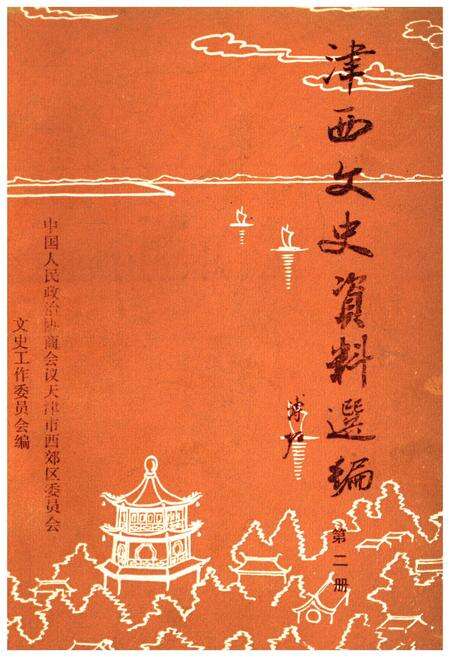 津西文史資料選編
第二册
中国人民政治协商会议天津市西郊区委员会
文史工作委员会编